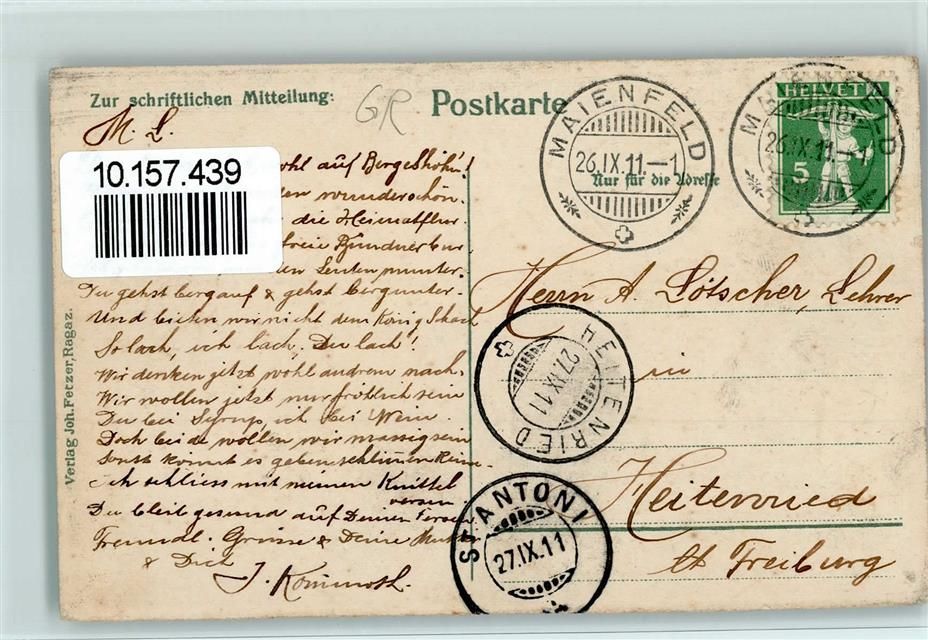 Zur schriftlichen Mitteilung:
GR
Postkarte
Nur für die Adresse
MAIENFELD
26.IX.11.-1
MAIENFELD
26.IX.11.-1
HELVETIA
5
M. L.
10.157.439
wohl auf Bergeshöh'!
wunderschön.
die Heimatflur.
freie Bündner
den Leuten munter.
Du gehst bergauf & gehst bergunter.
Und bieten wir nicht dem König Schach
So lach, ich lach. Du lach!
Wir denken jetzt wohl andrem nach,
Wir wollen jetzt nur fröhlich sein
Du bei Syrup, ich bei Wein.
Doch beide wollen wir mässig sein
Sonst könnt es geben schlimmen Reim.
Ich schliess mit meinen Knittel
versen
Du bleib gesund auf Deinen Fersen
Freundl. Grüsse & Deine Mutter
& Dich
J.
Verlag Joh. Fetzer, Ragaz.
Herrn A. Lötscher, Lehrer
in
Heitenried
Ct. Freiburg
HEITENRIED
27.IX.11
ST. ANTONI
27.IX.11